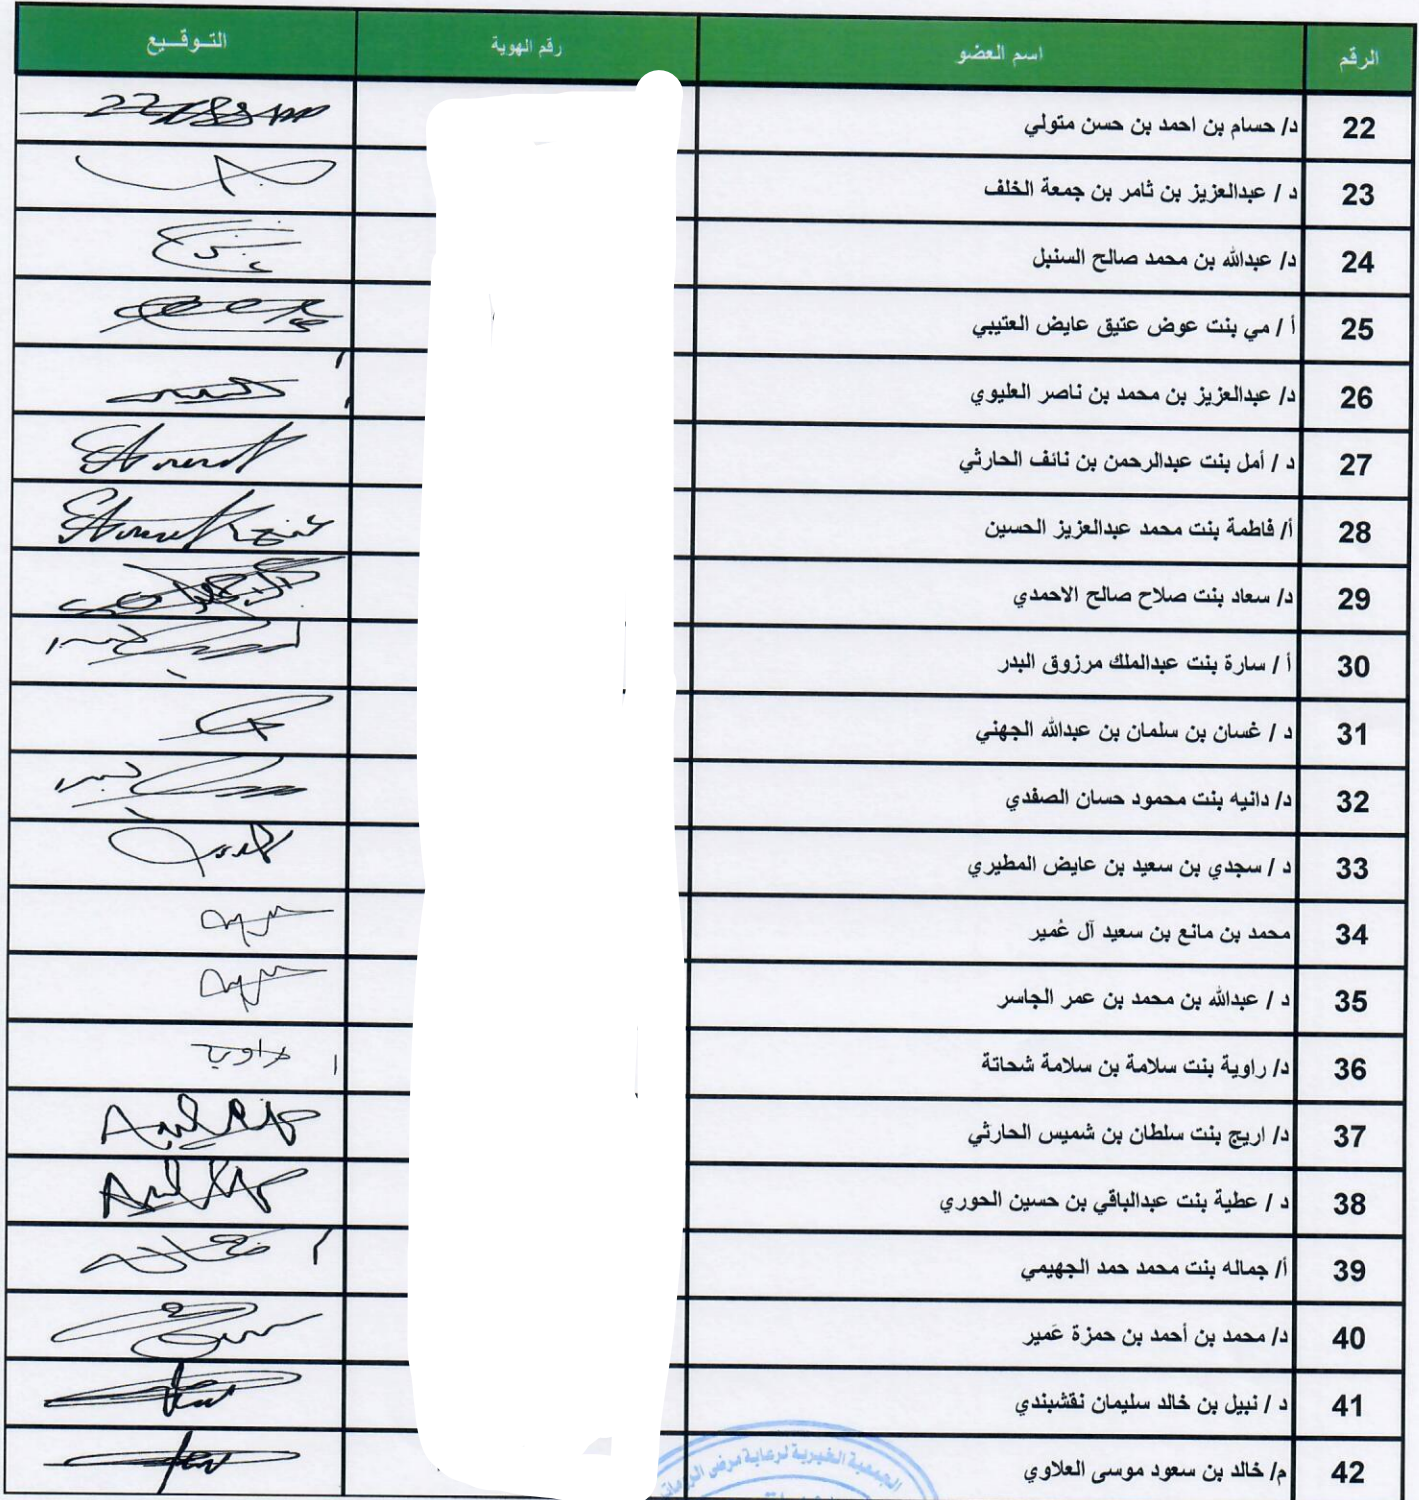 الرقم اسم العضو رقم الهوية التـوقـيع
22 د/ حسام بن احمد بن حسن متولي
23 د / عبدالعزيز بن ثامر بن جمعة الخلف
24 د/ عبدالله بن محمد صالح السنبل
25 أ / مي بنت عوض عتيق عايض العتيبي
26 د/ عبدالعزيز بن محمد بن ناصر العليوي
27 د / أمل بنت عبدالرحمن بن نائف الحارثي
28 أ/ فاطمة بنت محمد عبدالعزيز الحسين
29 د/ سعاد بنت صلاح صالح الاحمدي
30 أ / سارة بنت عبدالملك مرزوق البدر
31 د / غسان بن سلمان بن عبدالله الجهني
32 د/ دانيه بنت محمود حسان الصفدي
33 د / سجدي بن سعيد بن عايض المطيري
34 محمد بن مانع بن سعيد آل عُمير
35 د / عبدالله بن محمد بن عمر الجاسر
36 د/ راوية بنت سلامة بن سلامة شحاتة
37 د/ اريج بنت سلطان بن شميس الحارثي
38 د / عطية بنت عبدالباقي بن حسين الحوري
39 أ/ جماله بنت محمد حمد الجهيمي
40 د/ محمد بن أحمد بن حمزة عَمير
41 د / نبيل بن خالد سليمان نقشبندي
42 م/ خالد بن سعود موسى العلاوي
الجمعية الخيرية لرعاية مرضى